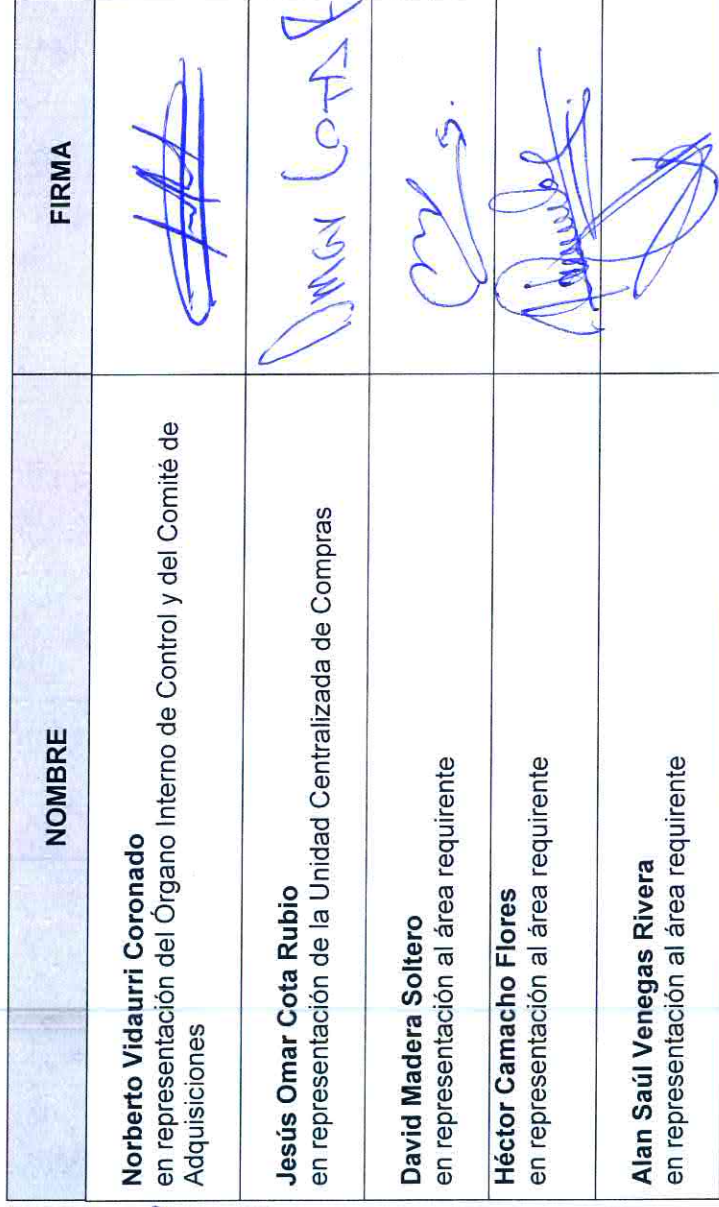 NOMBRE
FIRMA
Norberto Vidaurri Coronado
en representación del Órgano Interno de Control y del Comité de
Adquisiciones
Jesús Omar Cota Rubio
en representación de la Unidad Centralizada de Compras
Omar Cota
David Madera Soltero
en representación al área requirente
Héctor Camacho Flores
en representación al área requirente
Alan Saúl Venegas Rivera
en representación al área requirente